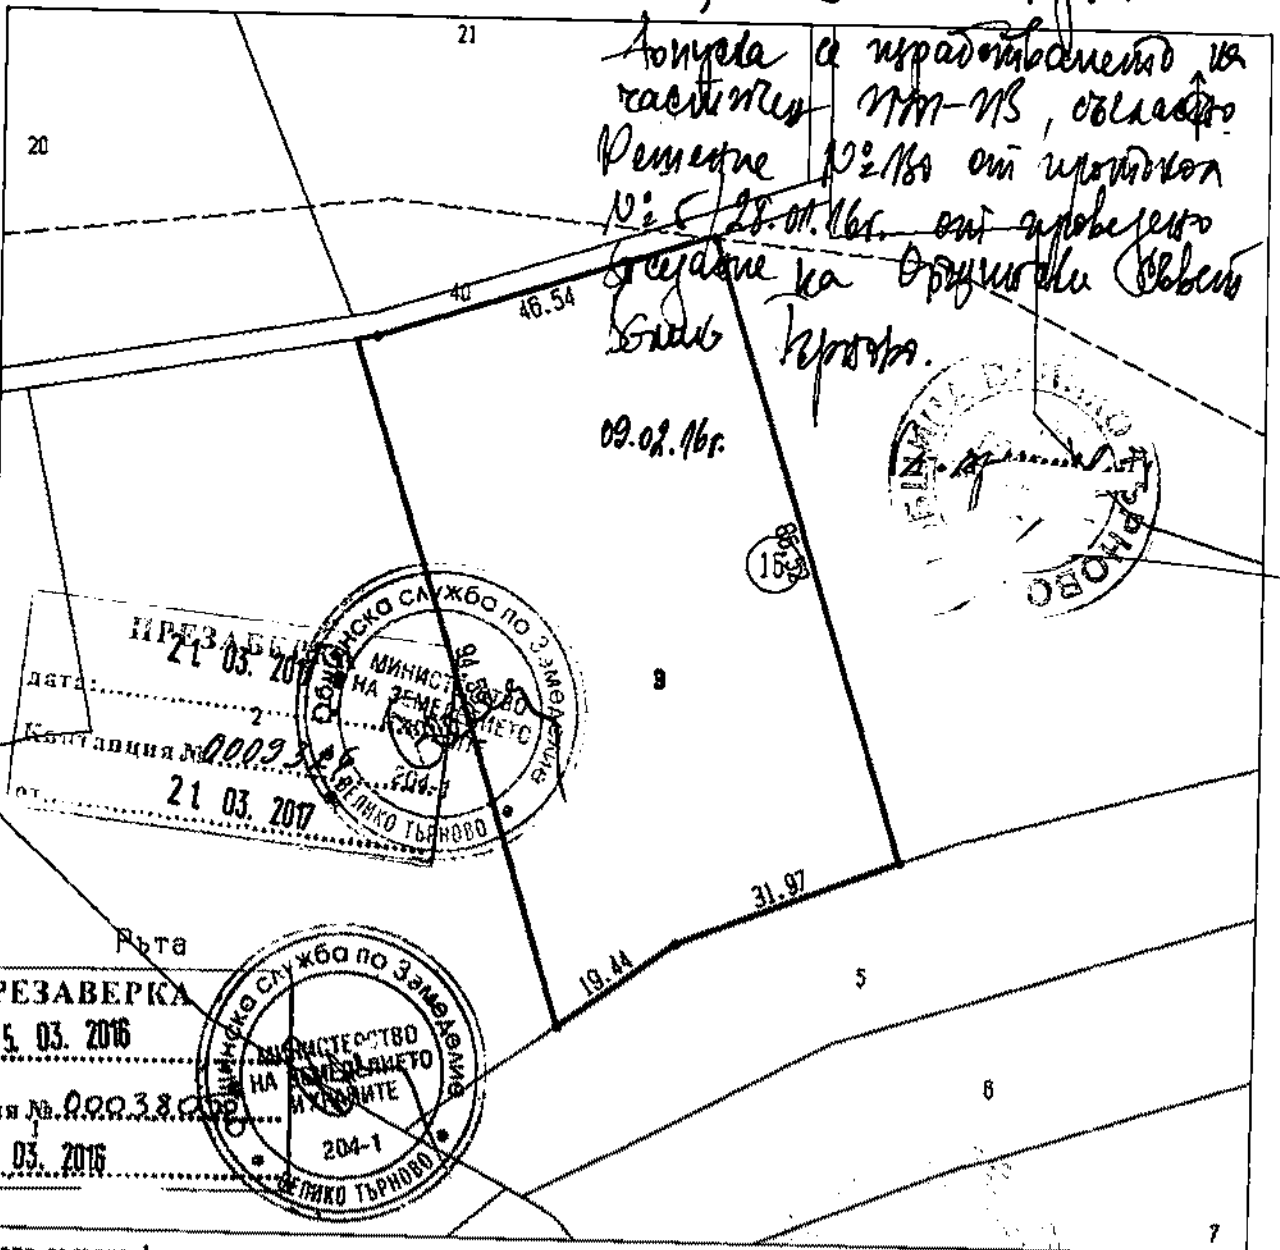 21
20
Допуска се изработването на
частичен ПУП-ПЗ, съгласно
Решение № от протокол
№ 28.01.16г. от проведено
заседание на Общински съвет
Велико Търново.
09.02.16г.
40
46.54
86.52
15
9
ОБЩИНА ВЕЛИКО ТЪРНОВО
ПРЕЗАВЕРКА
21 03. 2017
дата:
2
Квитанция №
от 21 03. 2017
Общинска служба по Земеделие
МИНИСТЕРСТВО
НА ЗЕМЕДЕЛИЕТО
И ХРАНИТЕ
204-1
ВЕЛИКО ТЪРНОВО
31.97
19.44
Рьта
5
РЕЗАВЕРКА
5. 03. 2016
я №
1
03. 2016
Общинска служба по Земеделие
МИНИСТЕРСТВО
НА ЗЕМЕДЕЛИЕТО
И ХРАНИТЕ
204-1
ВЕЛИКО ТЪРНОВО
6
7